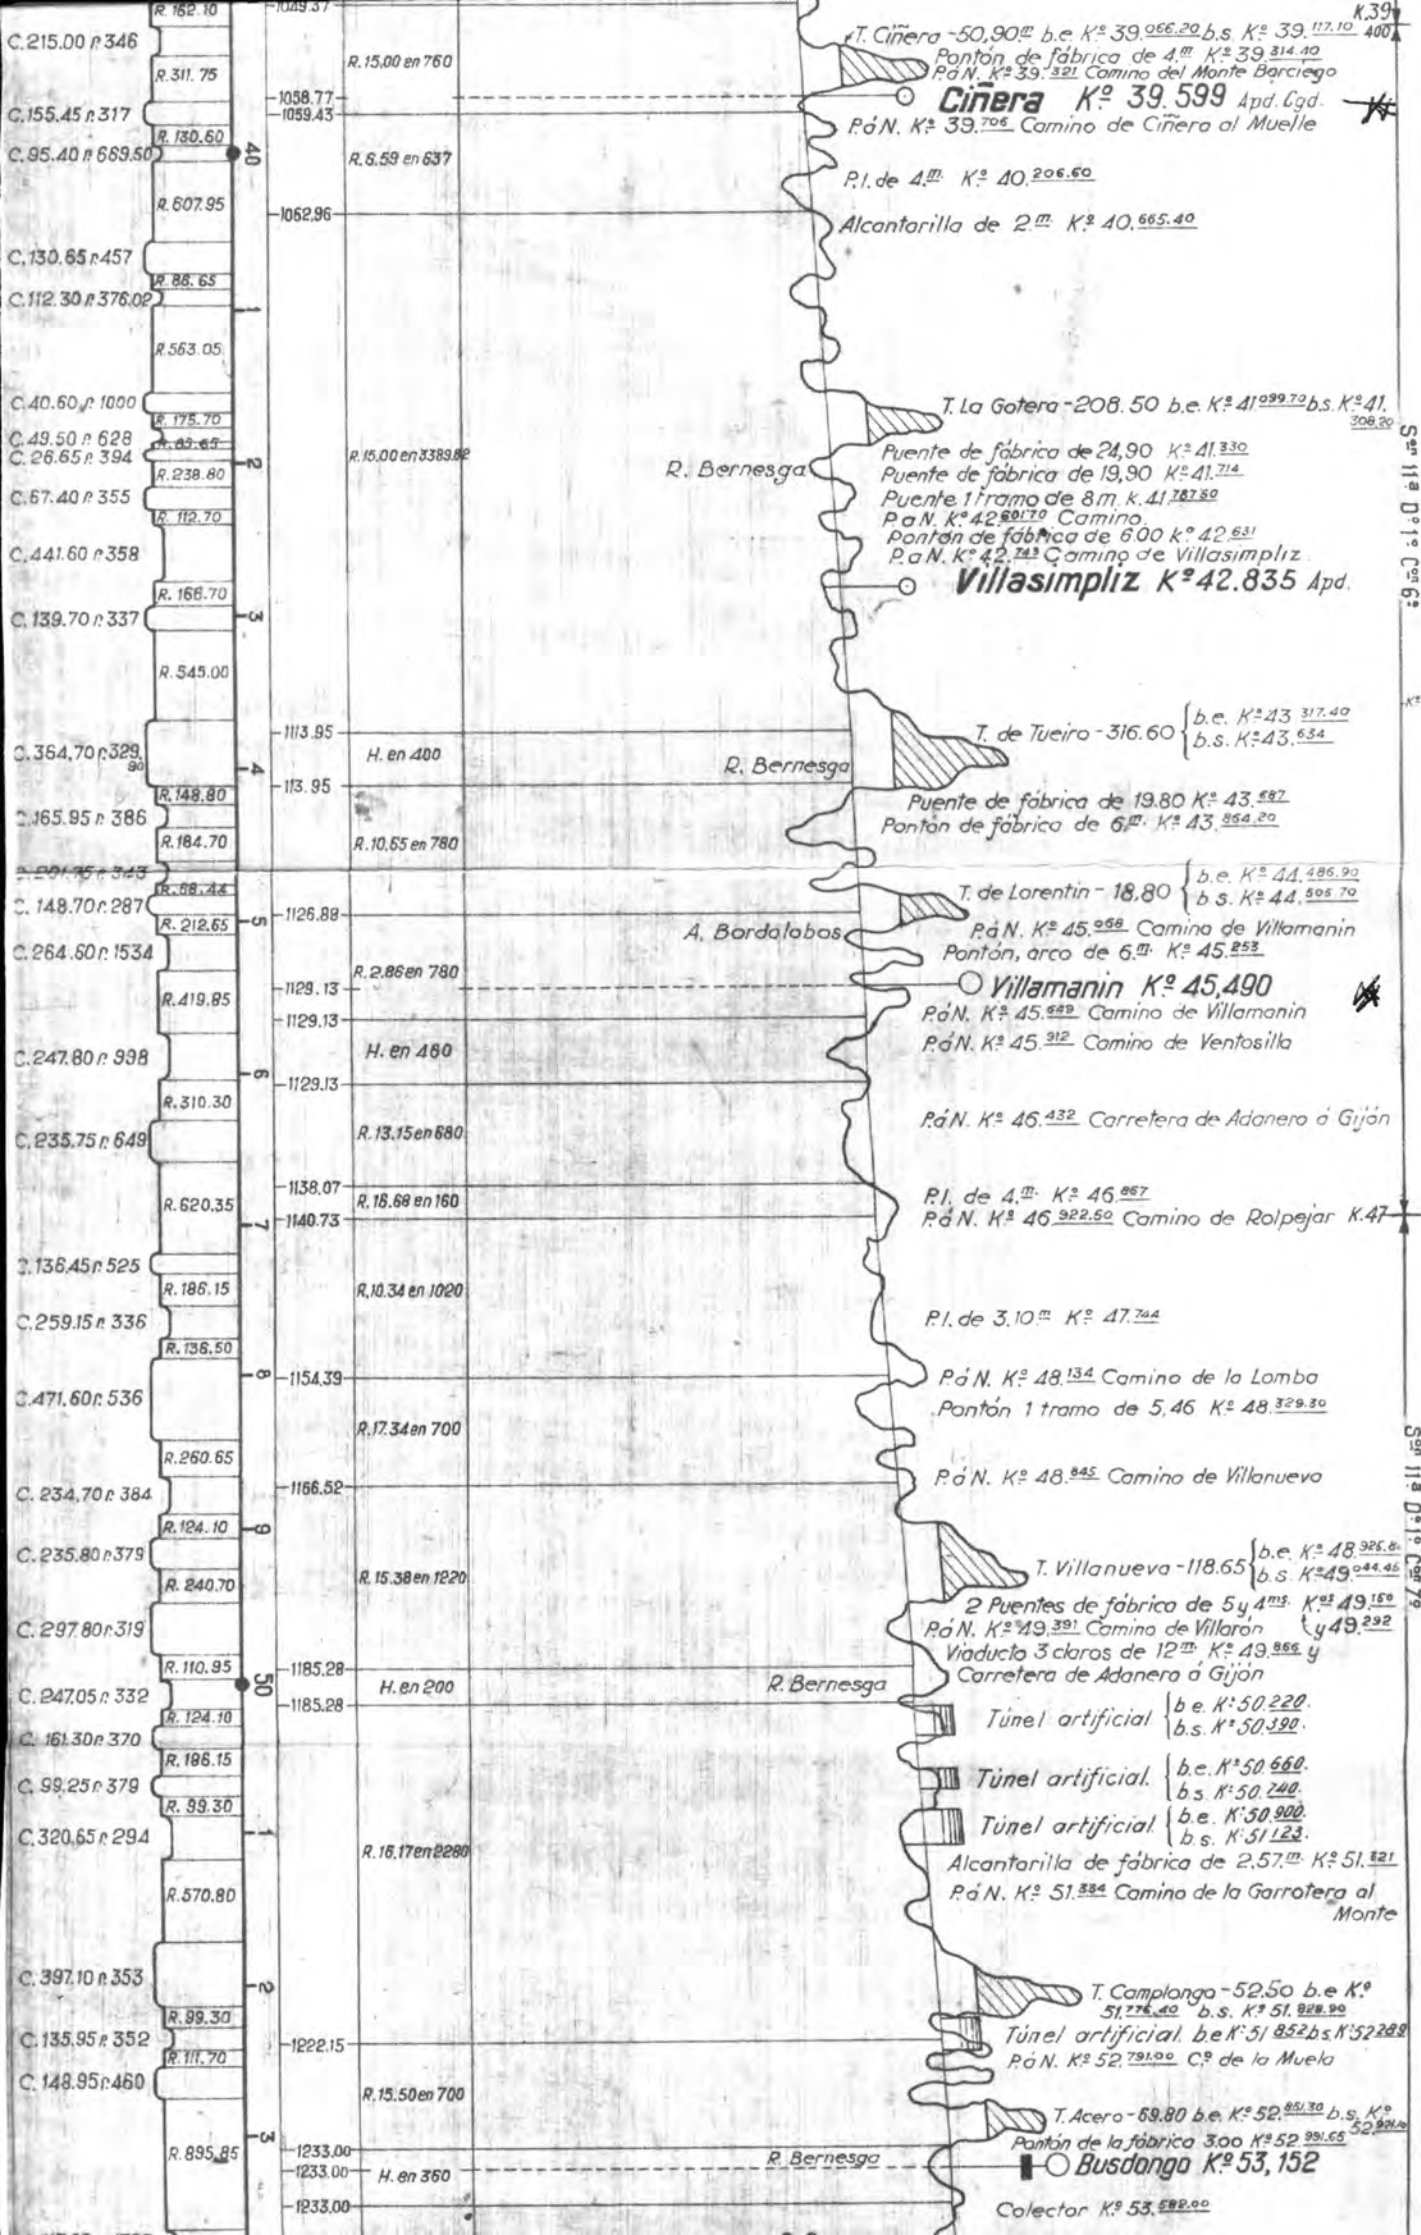 R. 162.10
C. 215.00 r. 346
R. 311.75
C. 155.45 r. 317
R. 130.60
C. 95.40 r. 669.50
R. 607.95
C. 130.65 r. 457
R. 86.65
C. 112.30 r. 376.02
R. 563.05
C. 40.60 r. 1000
R. 175.70
C. 49.50 r. 628
R. 83.65
C. 26.65 r. 394
R. 238.80
C. 67.40 r. 355
R. 112.70
C. 441.60 r. 358
R. 166.70
C. 139.70 r. 337
R. 545.00
C. 364,70 r. 329.90
R. 148.80
C. 165.95 r. 386
R. 184.70
R. 68.44
C. 148.70 r. 287
R. 212.65
C. 264.60 r. 1534
R. 419.85
C. 247.80 r. 998
R. 310.30
C. 235.75 r. 649
R. 620.35
C. 136.45 r. 525
R. 186.15
C. 259.15 r. 336
R. 136.50
C. 471.60 r. 536
R. 260.65
C. 234,70 r. 384
R. 124.10
C. 235.80 r. 379
R. 240.70
C. 297.80 r. 319
R. 110.95
C. 247.05 r. 332
R. 124.10
C. 161.30 r. 370
R. 186.15
C. 99.25 r. 379
R. 99.30
C. 320.65 r. 294
R. 570.80
C. 397.10 r. 353
R. 99.30
C. 135.95 r. 352
R. 111.70
C. 148.95 r. 460
R. 895.85
40
1
2
3
4
5
6
7
8
9
50
1
2
3
1049.37
1058.77
1059.43
1062.96
1113.95
1113.95
1126.88
1129.13
1129.13
1129.13
1138.07
1140.73
1154.39
1166.52
1185.28
1185.28
1222.15
1233.00
1233.00
1233.00
R. 15.00 en 760
R. 5.59 en 637
R. 15.00 en 3389.82
H. en 400
R. 10.65 en 780
R. 2.86 en 780
H. en 460
R. 13.15 en 680
R. 16.68 en 160
R. 10.34 en 1020
R. 17.34 en 700
R. 15.38 en 1220
H. en 200
R. 16.17 en 2280
R. 15.50 en 700
H. en 360
R. Bernesga
R. Bernesga
A. Bordalobos
R. Bernesga
R. Bernesga
K.39
400
T. Ciñera - 50,90 m b.e. Kº 39.066.20 b.s. Kº 39.117.10
Pontón de fábrica de 4.m Kº 39.314.40
P. á N. Kº 39.321 Camino del Monte Barciego
Ciñera Kº 39.599 Apd. Cgd.
P. á N. Kº 39.706 Camino de Ciñera al Muelle
P.I. de 4.m Kº 40.206.60
Alcantarilla de 2.m Kº 40.665.40
T. La Gotera - 208.50 b.e. Kº 41.099.70 b.s. Kº 41.308.20
Puente de fábrica de 24,90 Kº 41.330
Puente de fábrica de 19,90 Kº 41.714
Puente 1 tramo de 8 m. K. 41.787.50
P. a N. Kº 42.601.70 Camino.
Pontón de fábrica de 6.00 Kº 42.631
P. a N. Kº 42.743 Camino de Villasimpliz
Villasimpliz Kº 42.835 Apd.
Sºn 11ª Dº 1º Cºn 6ª
T. de Tueiro - 316.60 { b.e. Kº 43 317.40
b.s. Kº 43.634
Puente de fábrica de 19.80 Kº 43.687
Pontón de fábrica de 6.m Kº 43.864.20
T. de Lorentin - 18.80 { b.e. Kº 44.486.90
b.s. Kº 44.505.70
P. á N. Kº 45.058 Camino de Villamanin
Pontón, arco de 6.m Kº 45.253
Villamanin Kº 45,490
P. á N. Kº 45.649 Camino de Villamanin
P. á N. Kº 45.912 Camino de Ventosilla
P. á N. Kº 46.432 Carretera de Adanero á Gijón
P.I. de 4.m Kº 46.867
P. á N. Kº 46.922.50 Camino de Rolpejar K.47
P.I. de 3.10 m Kº 47.744
P. á N. Kº 48.134 Camino de la Lomba
Pontón 1 tramo de 5,46 Kº 48.329.30
P. á N. Kº 48.845 Camino de Villanueva
Sºn 11ª Dº 1º Cºn 7ª
T. Villanueva - 118.65 { b.e. Kº 48.925.8
b.s. Kº 49.044.45
2 Puentes de fábrica de 5 y 4 ms. Kºs 49.150 y 49.292
P. á N. Kº 49.391 Camino de Villarón
Viaducto 3 claros de 12 m. Kº 49.866 y
Carretera de Adanero á Gijón
Túnel artificial { b.e. Kº 50.220.
b.s. Kº 50.390.
Túnel artificial. { b.e. Kº 50.660.
b.s. Kº 50.740.
Túnel artificial { b.e. Kº 50.900.
b.s. Kº 51.123.
Alcantarilla de fábrica de 2,57 m. Kº 51.321
P. á N. Kº 51.334 Camino de la Garrotera al
Monte
T. Camplongo - 52.50 b.e Kº
51.776.40 b.s. Kº 51.828.90
Túnel artificial. b.e Kº 51 852 b.s. Kº 52 289
P. á N. Kº 52.791.00 Cº de la Muela
T. Acero - 69.80 b.e. Kº 52.851.30 b.s. Kº
Pontón de la fábrica 3.00 Kº 52.991.65
Busdongo Kº 53,152
Colector Kº 53.582.00